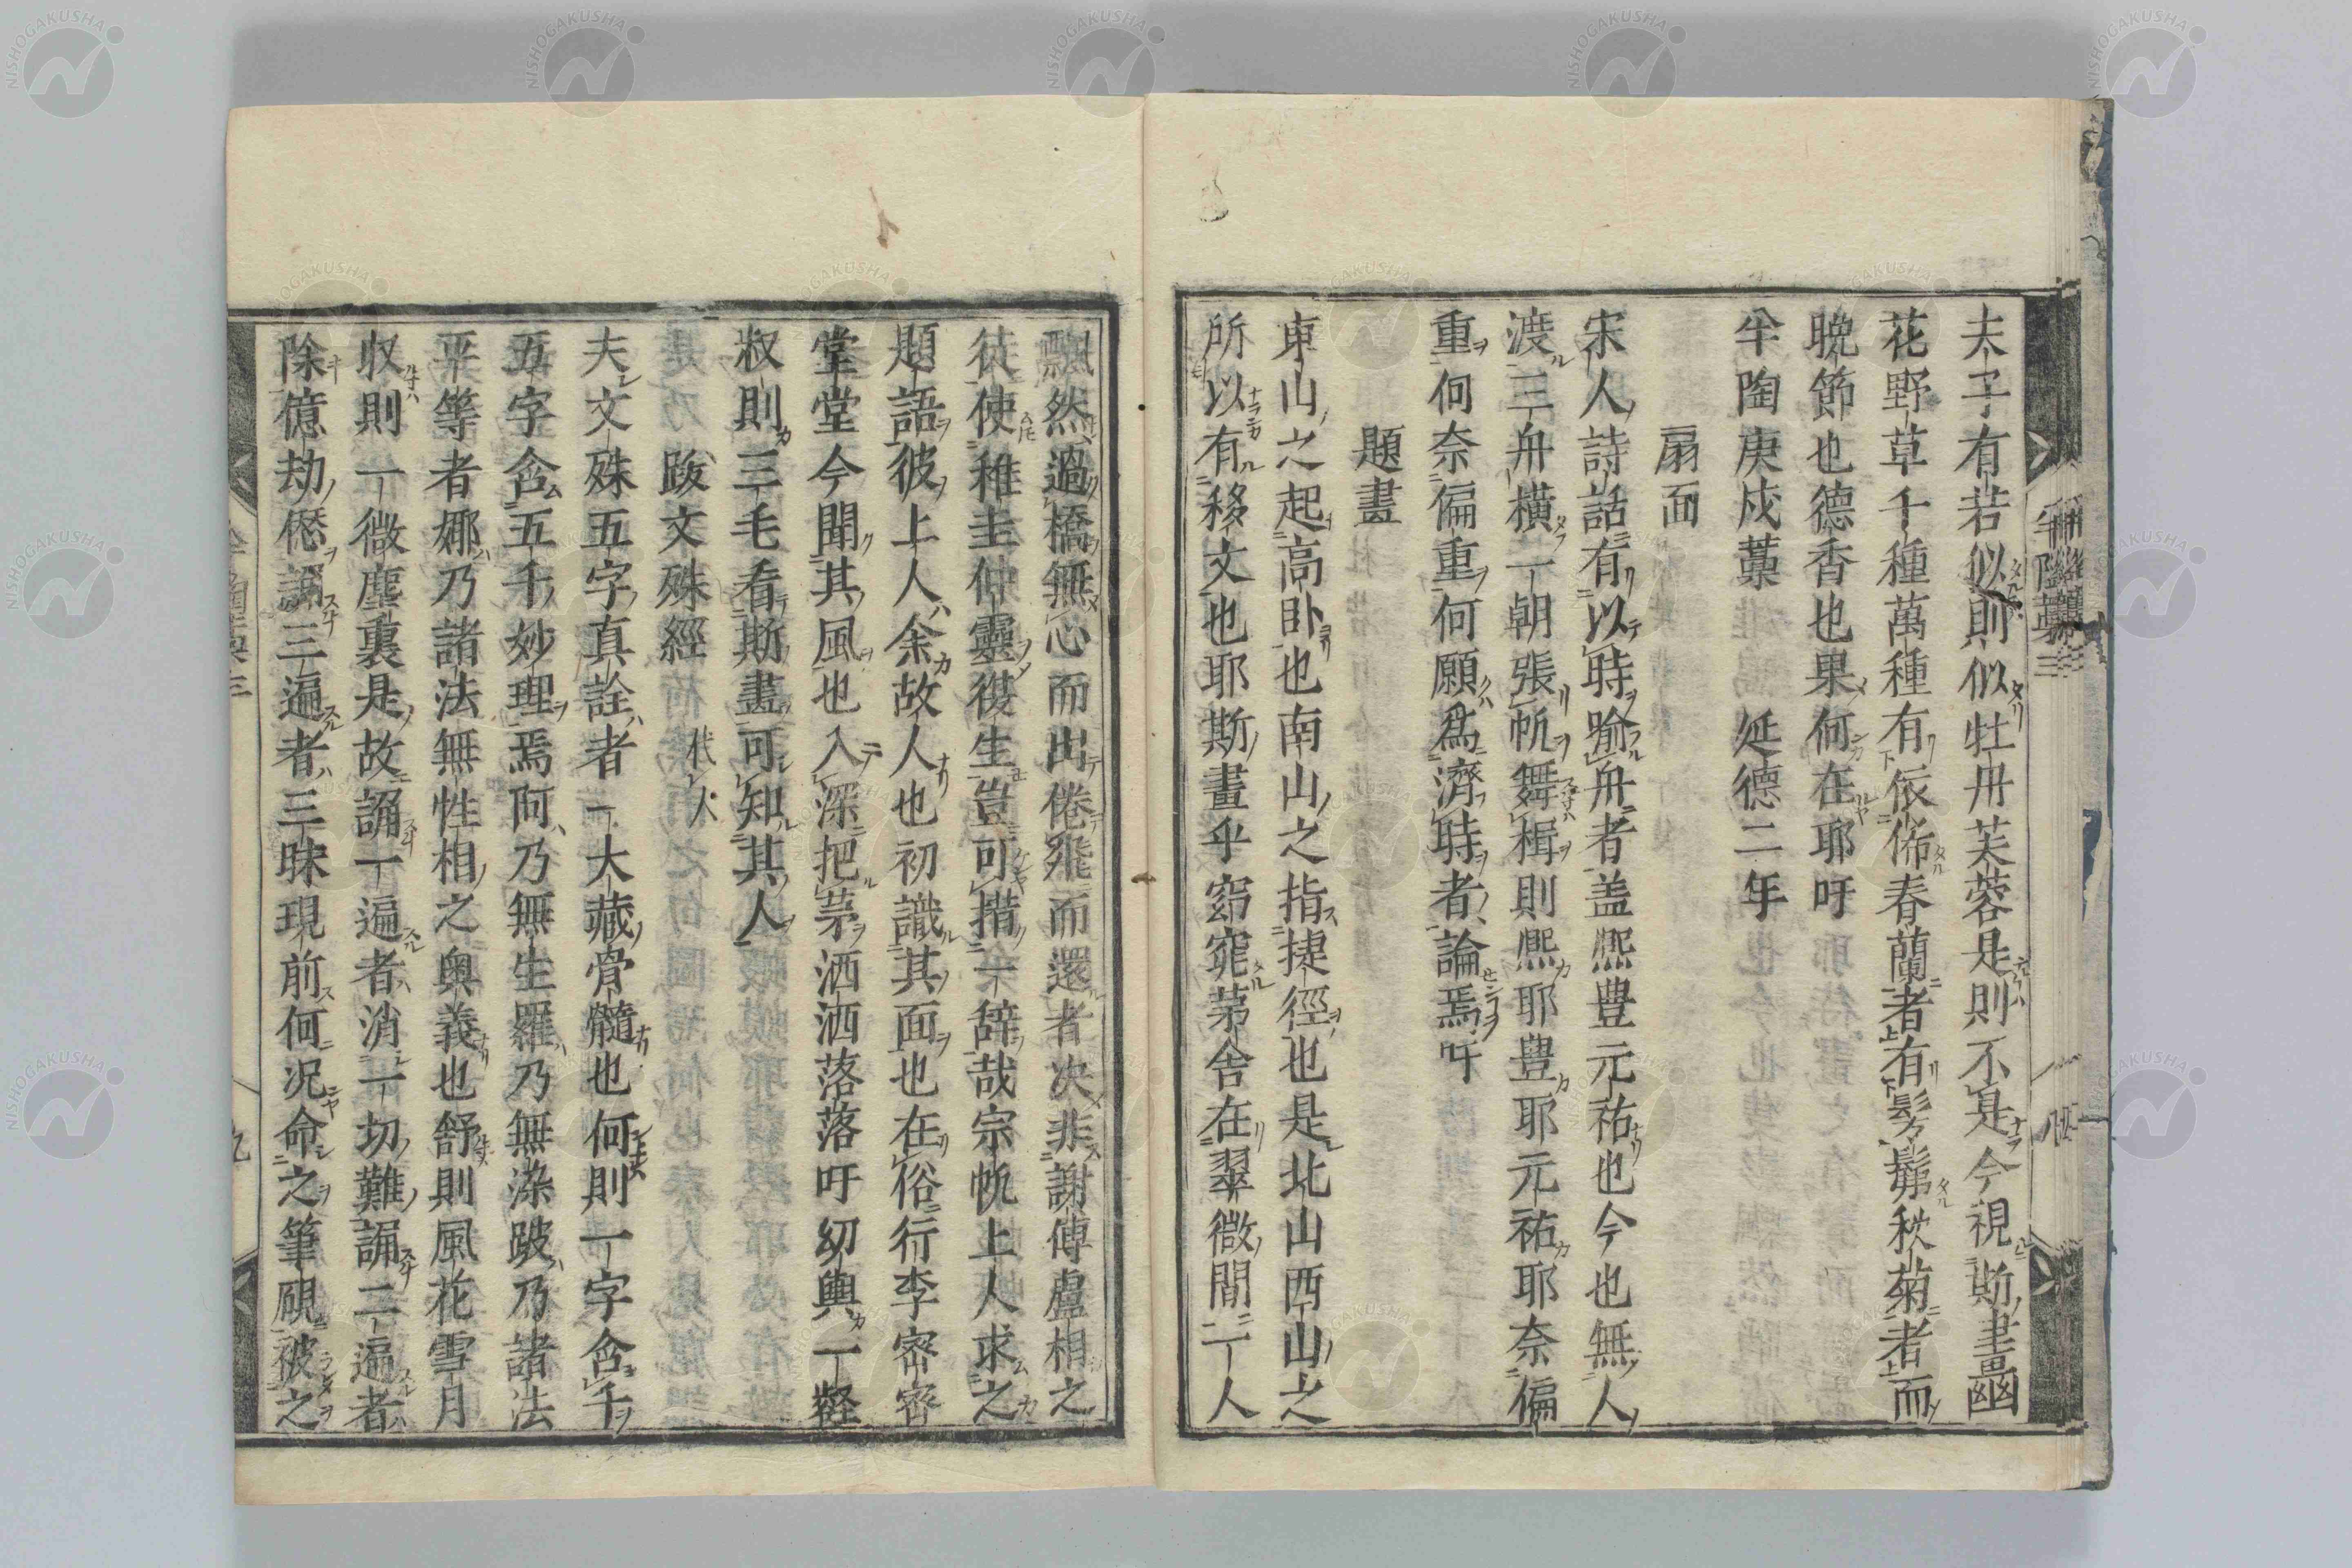 夫子有若似則似牡丹芙蓉是則不是今視斯畫幽
花野草千種萬種有依俙春蘭者有髣髴秋菊者而
晩節也德香也果何在耶吁
半陶庚戌藁　延德二年
扇面
宋人詩話有以時喩舟者盖熈豊元祐也今也無人
渡三舟横一朝張帆舞楫則熈耶豊耶元祐耶奈偏
重何奈偏重何願爲濟時者論焉吁
題畫
東山之起高卧也南山之指捷徑也是北山西山之
所以有移文也耶斯畫乎窈窕茅舍在翠微間一人
飄然過橋無心而出倦飛而還者决非謝傅盧相之
徒使稚圭仲靈復生豈可措一辞哉宗帆上人求之
題語彼上人余故人也初識其面也在俗行李密密
堂堂今聞其風也入深把茅洒洒落落吁幼輿一壑
叔則三毛看斯畫可知其人
跋文殊經　代人
夫文殊五字真詮者一大藏骨髓也何則一字含千
五字含五千妙理焉阿乃無生羅乃無染跛乃諸法
平等者娜乃諸法無性相之奥義也舒則風花雪月
収則一微塵裏是故誦一遍者消一切難誦二遍者
除億劫𠎝誦三遍者三昧現前何况命之筆硯被之
半陶藁三
八
九
NISHOGAKUSHA